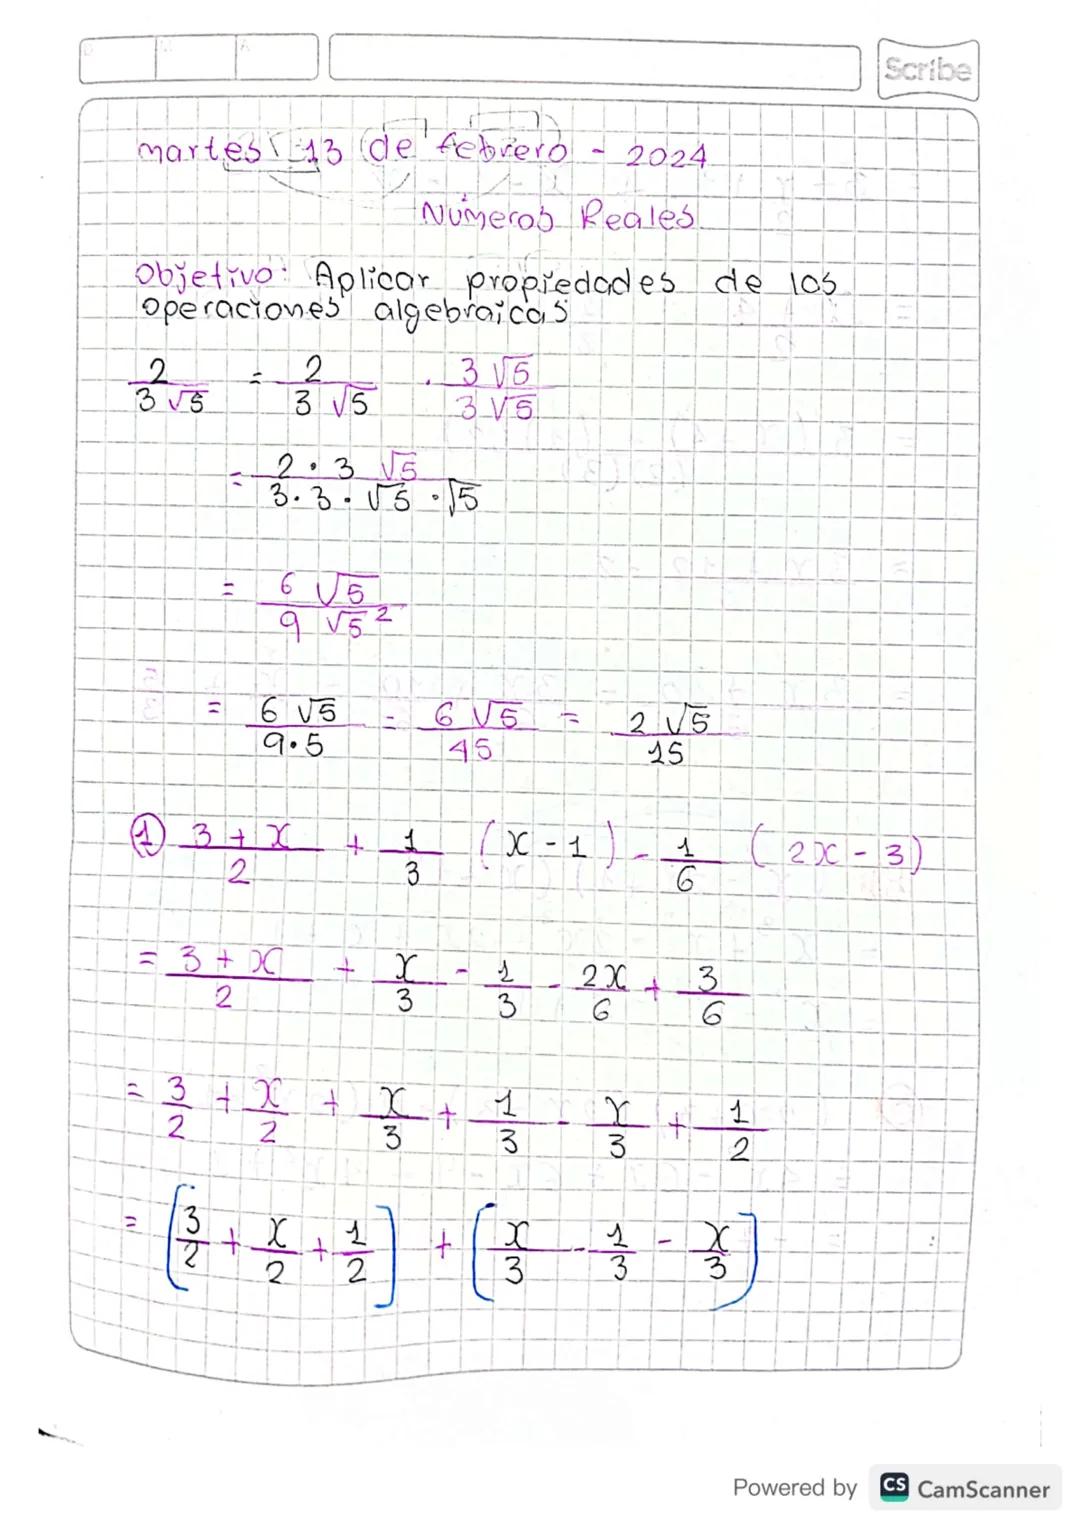 D M A
Scribe
martes 13 de febrero - 2024
Números Reales
Objetivo: Aplicar propiedades de las
operaciones algebraicas
2/(3√5) = 2/(3√5) · (3√5)/(3√5)
= (2·3√5)/(3·3·√5·√5)
= (6√5)/(9√5²)
= (6√5)/(9·5) = (6√5)/45 = (2√5)/15
① (3+x)/2 + 1/3 (x-1) - 1/6 (2x-3)
= (3+x)/2 + x/3 - 1/3 - 2x/6 + 3/6
= 3/2 + x/2 + x/3 + 1/3 - x/3 + 1/2
= [3/2 + x/2 + 1/2] + [x/3 - 1/3 - x/3]
Powered by CS CamScanner